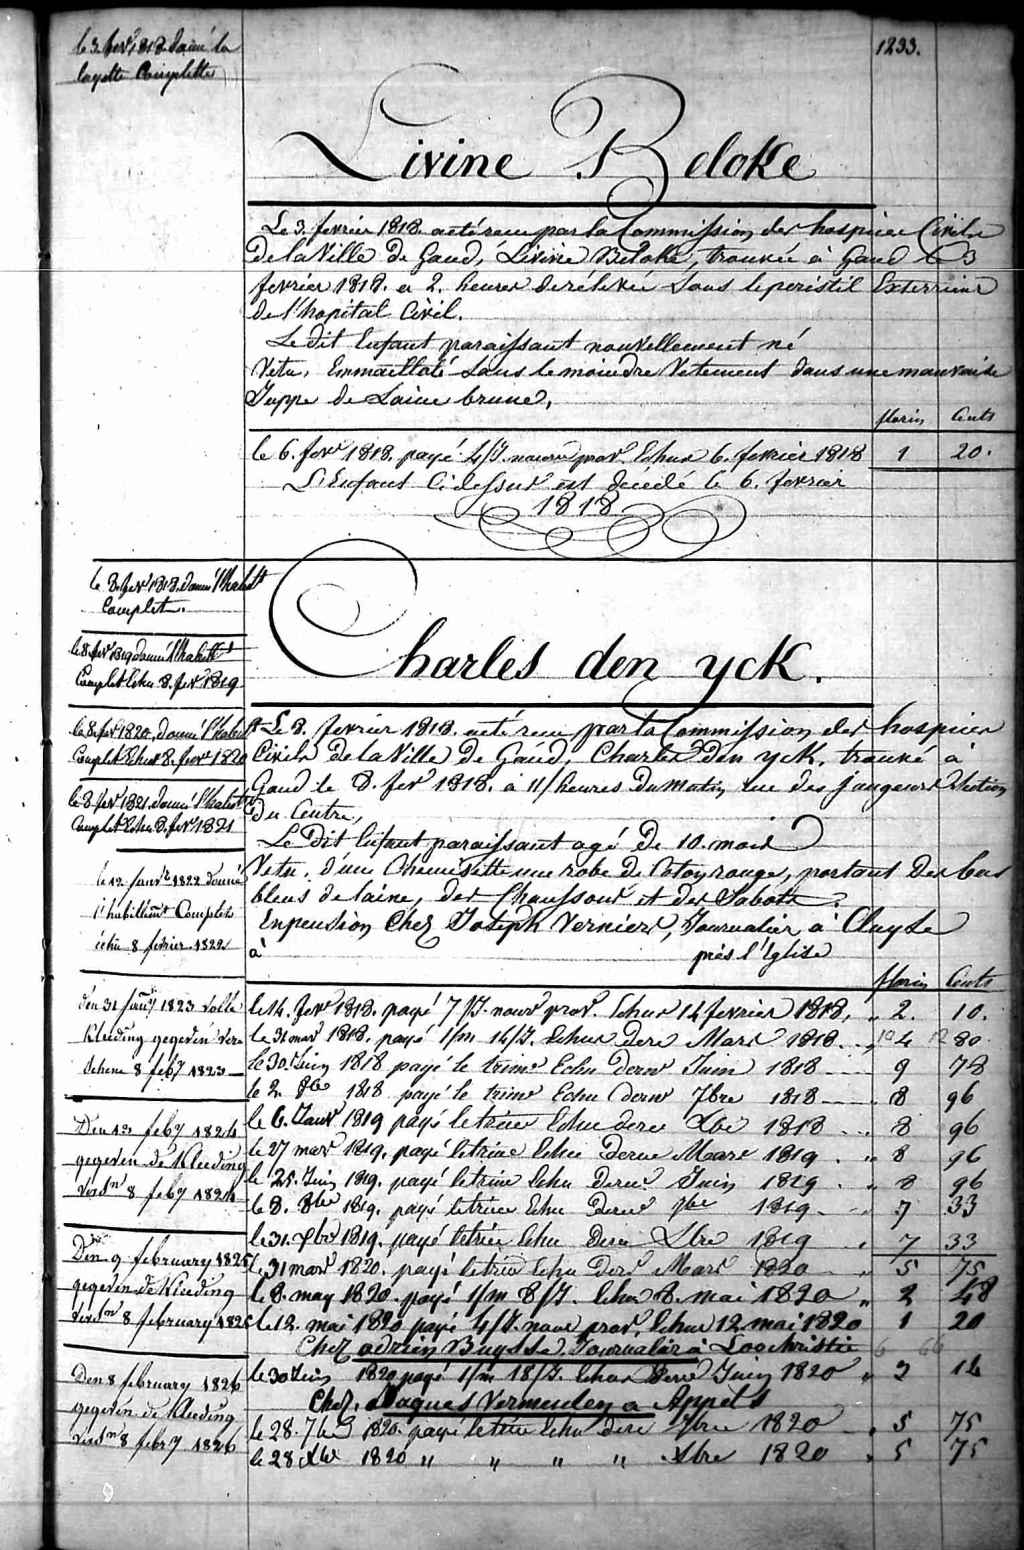 le 3 fevr 1818 donné la
layette Complette
1233.
Livine Beloke
Le 3. fevrier 1818. a été recu par la Commission des hospices Civils
de la Ville de Gand, Livine Beloke, trouvée à Gand le 3
fevrier 1818. a 2. heures de rélevée sous le peristil Exterrieur
de l'hopital Civil.
Le dit Enfant paraissant nouvellement né
Vetu, Emmailloté sans le moindre Vetement dans une mauvaise
Juppe de Laine brune,
florins Cents
le 6. fevr 1818. payé 4/J. nourre prov. Echus 6. fevrier 1818 1 20.
L'Enfant Cidessus est decedé le 6. fevrier
1818
le 8. fevr 1818. donné l'habillt
Complet.
le 8. fevr 1819 donné l'habillt
Complet Echu 8. fevr 1819
le 8. fevr 1820, donné l'habillt
Complet Echu 8. fevr 1820
le 8 fevr 1821, donné l'habillt
Complet Echu 8. fevr 1821
le 12 Janvr 1822 donné
l'habillemt Complet
échu 8 fevrier 1822
den 31 Janry 1823 volle
Kleeding gegeven vers
8 feby 1823
Den 13 feby 1824
gegeven de Kleeding
versn 8 feby 1824
Den 9 february 1825
gegeven de Kleeding
versn 8 february 1825
Den 8 february 1826
gegeven de Kleeding
versn 8 febry 1826
Charles den yck.
Le 8. fevrier 1818. a été recu par la Commission des hospices
Civils de la Ville de Gand, Charles Den yck, trouvé à
Gand le 8. fevr 1818. à 11/heures du Matin rue des jaugeurs Section
du Centre,
Le Dit Enfant paraissant agé de 10. mois
Vetu, d'une Chemisette une robe de Coton rouge, portant des bas
bleus de laine, des Chaussons et des Sabots.
En pension Chez Joseph Vernier, Journalier à Cluyse
à près l'Eglise
florins Cents
le 14. fevr 1818. payé 7/J. nourr prov. Echus 14 fevrier 1818, 2. 10.
le 31 mars 1818. payé 1/m 14/J. Echus dere Mars 1818 4 80
le 30. Juin 1818 payé le trimr Echu dernr Juin 1818 9 78
le 2. 8bre 1818 payé le trimr Echu dernr 7bre 1818 8 96
le 6. Janvr 1819 payé le trime Echu dere Xbre 1818 8 96
le 27 mars 1819. payé le trime Echu Derne Mars 1819 8 96
le 25. Juin 1819. payé le trime Echu Derne Juin 1819 8 96
le 8. 8bre 1819. payé le trime Echu Derne 7bre 1819 7 33
le 31. Xbre 1819. payé le trime Echu Derne Xbre 1819 7 33
le 31 mars 1820. payé le trime Echu Derr Mars 1820 5 75
le 8. may 1820 payé 1/m 8/J. Echus 8. mai 1820 2 48
le 12. mai 1820 payé 4/J. nourr prov. Echus 12 mai 1820 1 20
Chez adrien Buysse, Journalier à Loochristie
le 30 Juin 1820 payé 1/m 18/J. Echus Derne Juin 1820 3 14
Chez. Jaques Vermeulen a Appels
le 28. 7bre 1820. payé le trime Echu dere 7bre 1820 5 75
le 28 Xbre 1820 " " " " Xbre 1820 5 75